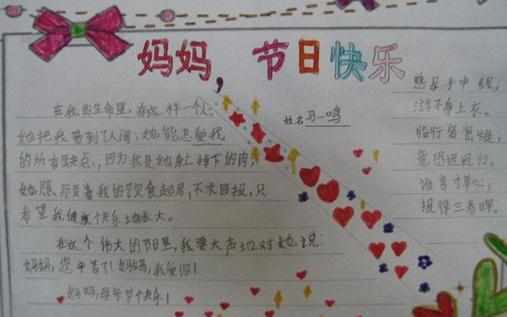 妈妈，节日快乐
在我的生命里，有这样一个人：
姓名
她把我带到人间，她能忍受我
的所有缺点，因为我是她身上掉下的肉，
她照顾着我的饮食起居，不求回报，只
希望我健康快乐地长大。
在这个伟大的节日里，我要大声地对她说：
妈妈，您辛苦了！妈妈，我爱您！
妈妈，母亲节快乐！
慈母手中线，
游子身上衣。
临行密密缝，
意恐迟迟归。
谁言寸草心，
报得三春晖。